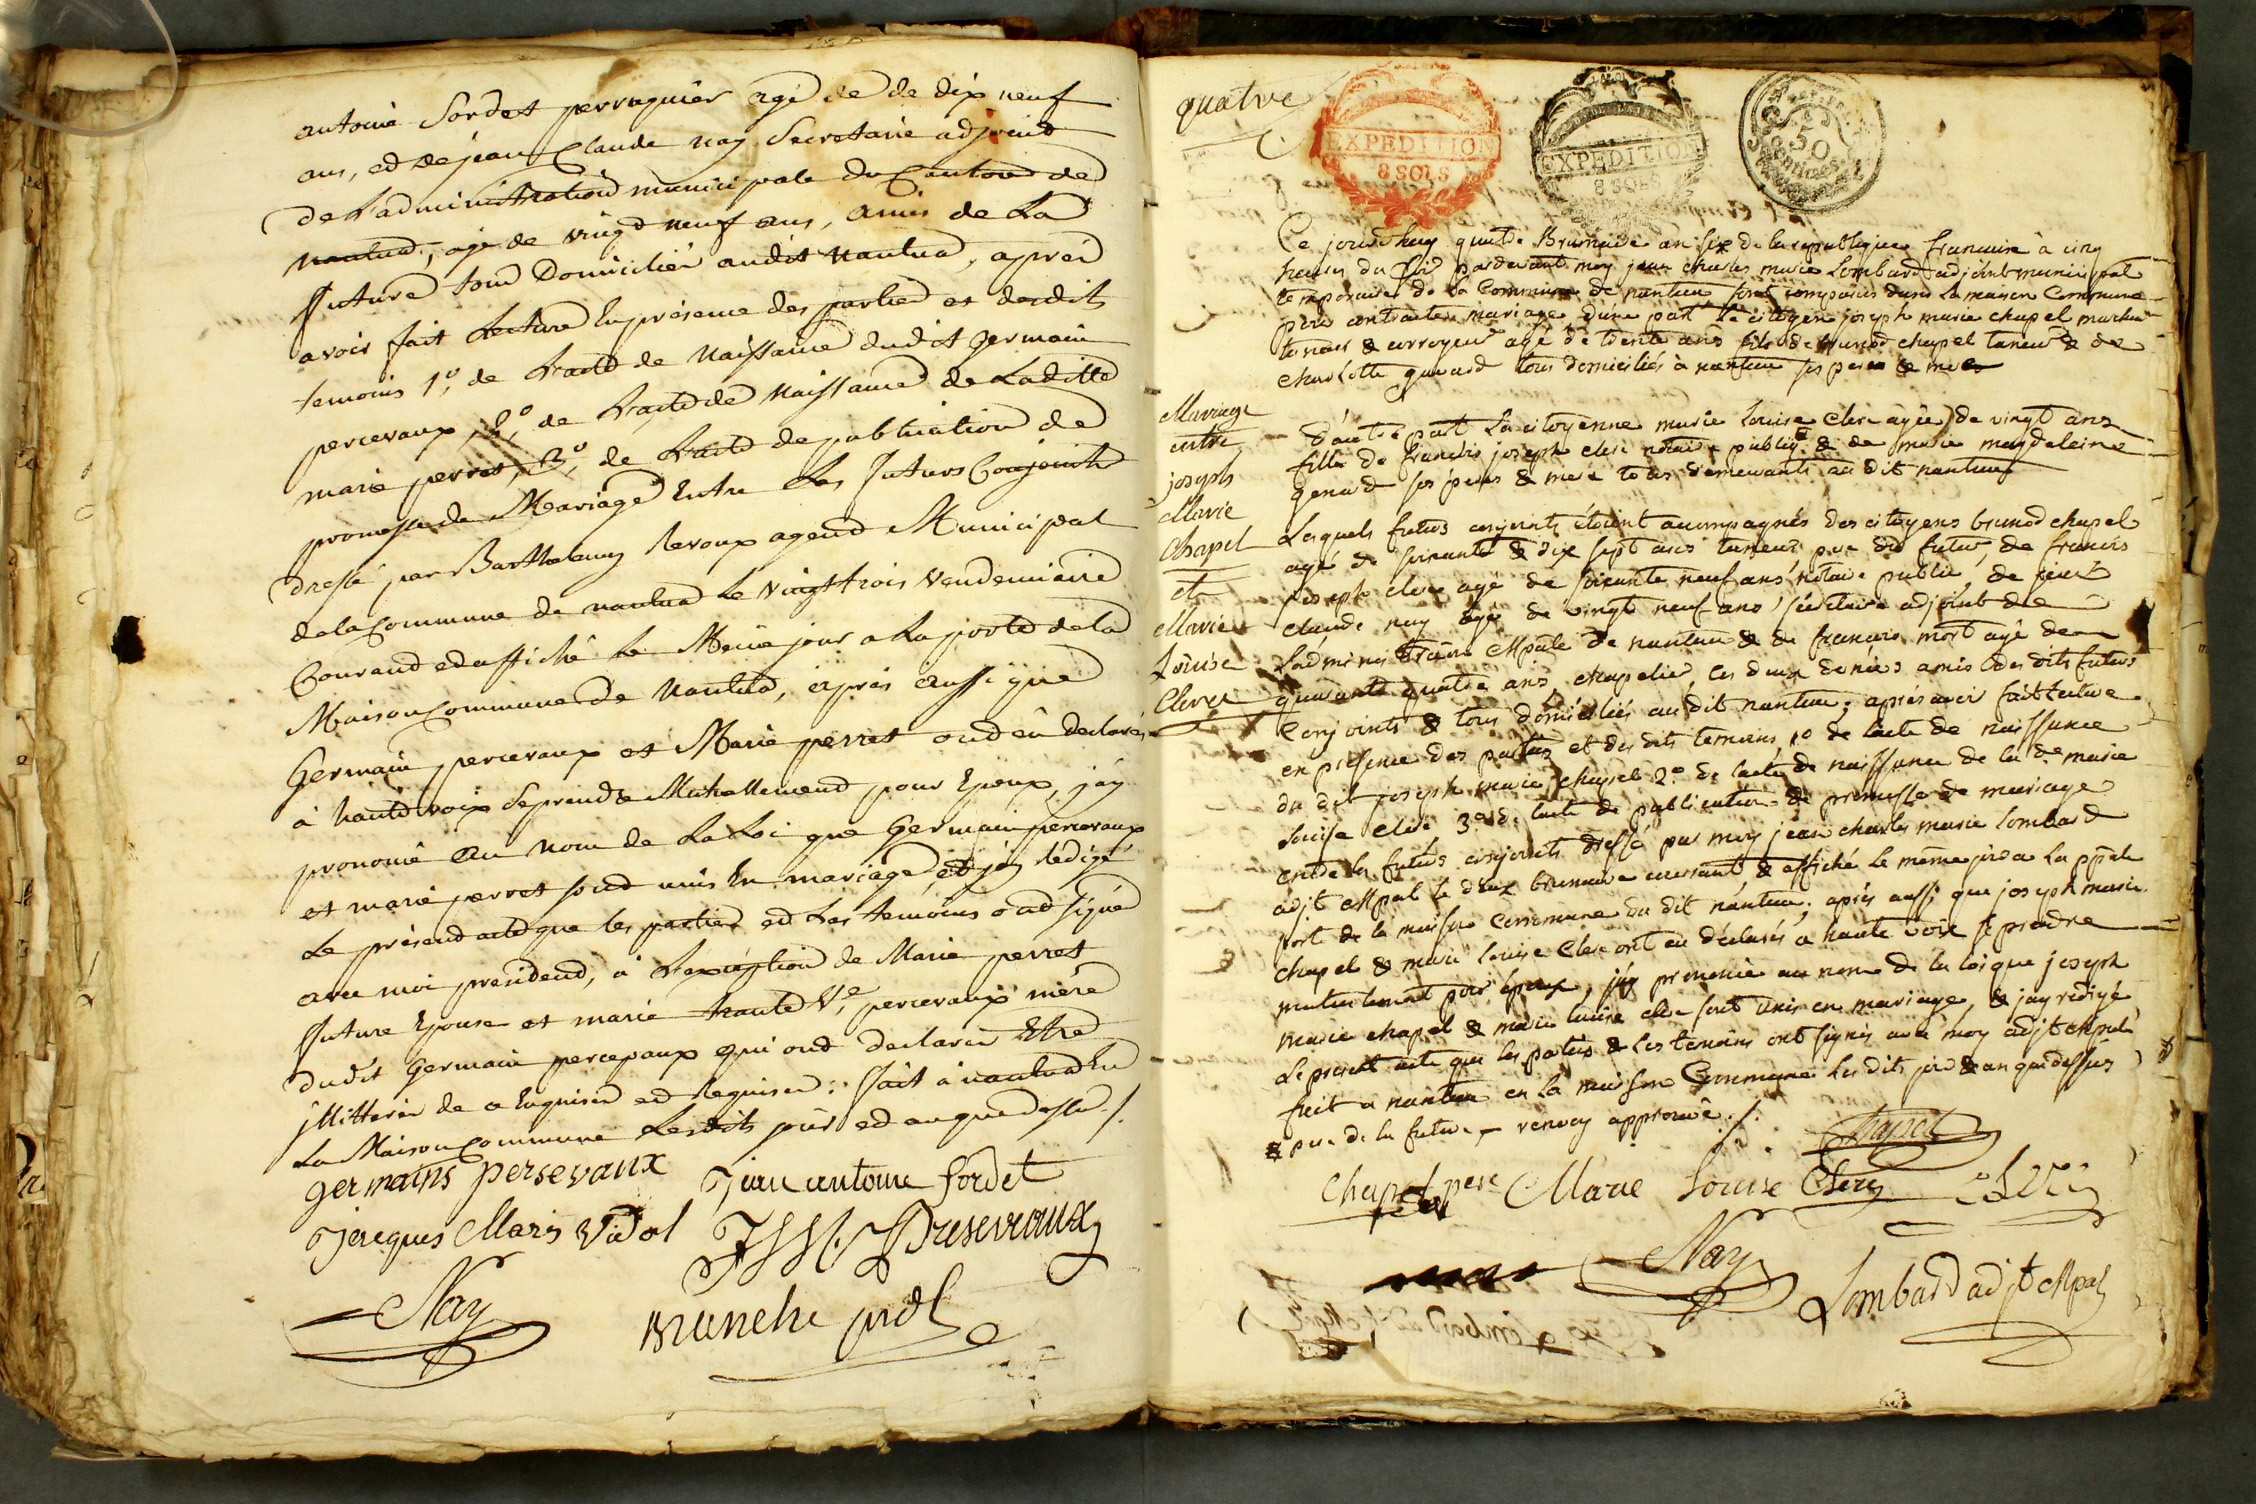 antoine Sordet perruquier agé de de dix neuf
ans, et de jean Claude nay Secretaire adjoind
de L'administration municipale du Canton de
nantua, age de vingt neuf ans, amis de La
future tous Domicilier audit nantua, après
avoir fait Lecture En présence des parties et desdits
temoins 1º, de L'acte de Naissance dudit germain
percevaux, 2º, de L'acte de Naissance de Laditte
marie perret, 3º, de L'acte de publication de
promesse de Mariage Entre Les futurs Conjoints
dressé par Barthelemy Revoux agend Municipal
de la Commune de nantua Le vingt trois Vendemiaire
Courand ed affiché le Meme jour a La porte de la
Maison Commune de Nantua, après aussi que
Germain percevaux et Marie perret oud eu declarés
à haute voix Se prendre Mutuellemend pour Epoux, j'ay
prononcé au Nom de La Loi que Germain percevaux
et marie perret soud unis En mariage, et j'ay Redigé
Le présend acte que les parties ed Les temoins oud signé
avec moi présidend, à L'exception de Marie perret
future Epouse et marie Vᵉ, percevaux mère
dudit Germain percevaux qui oud declarer Etre
jllitterer de a Enquiser ed Requiser: fait à nantua En
La Maison Commune Lesdits jour ed an que dessus ./.
germains persevaux Jean antoine Sordet
Jacques Maris Vidol
Nay
Brunche prdt
quatre
EXPEDITION
8 SOLS
EXPEDITION
8 SOLS
50
Centimes
Ce jourdhuy quatre Brumaire an six de la republique francaise à cinq
heures du soir pardevant moy jean charles marie Lombard adjoint municipal
temporaire de la Commune de nantua sont comparus dans la maison Commune
pour contracter mariage d'une part le citoyen joseph marie chapel marchand
taneur & corroyeur agé de trente ans fils de brunod chapel taneur & de
charlotte tous domiciliés à nantua ses pere & mere
Mariage
entre
joseph
Marie
Chapel
et
Marie
Louise
Clerc
d'autre part La citoyenne marie Louise Clerc agée de vingt ans
fille de francois joseph clerc notaire public & de marie magdeleine
ses peres & mere tous demeurants au dit nantua
Lesquels futurs conjoints étoient acompagnés des citoyens brunod chapel
agé de soixante & dix sept ans taneur, pere du futur, de francois
joseph clerc agé de soixante neuf ans notaire public, de jean
claude nay agé de vingt neuf ans secretaire adjoint de
Ladministration Mpale de nantua & de francois mort agé de
quarante quatre ans, chapelier, les deux derniers amis des dits futurs
Conjoints & tous domiciliés au dit nantua; apres avoir fait lecture
en presence des parties et des dits temoins, 1º de lacte de naissance
du dit joseph marie chapel 2º de lacte de naissance de la dᵉ marie
Louise clerc 3º de lacte de publication de promesse de mariage
entre les futurs conjoints dressé par moy jean charles marie Lombard
adjt Mpal le deux brumaire courant & affiché le même jour a La pple
port de la maison Commune du dit nantua; après aussi que joseph marie
chapel & marie Louise Clerc ont eu déclarés a haute voix se prendre
mutuelement pour époux, j'ay prononcé au nom de la loi que joseph
marie chapel & marie Louise clerc sont unis en mariage, & jay redigé
Le present acte que les parties & Les temoins ont signés avec moy adjt Mpal
fait a nantua en La maison Commune Les dits jour & an que dessus
& pere de la future, renvoy approuvé ./.
Chapel
Chapel pere Marie Louise Clerc Clerc
Nay
Lombard adjt Mpal